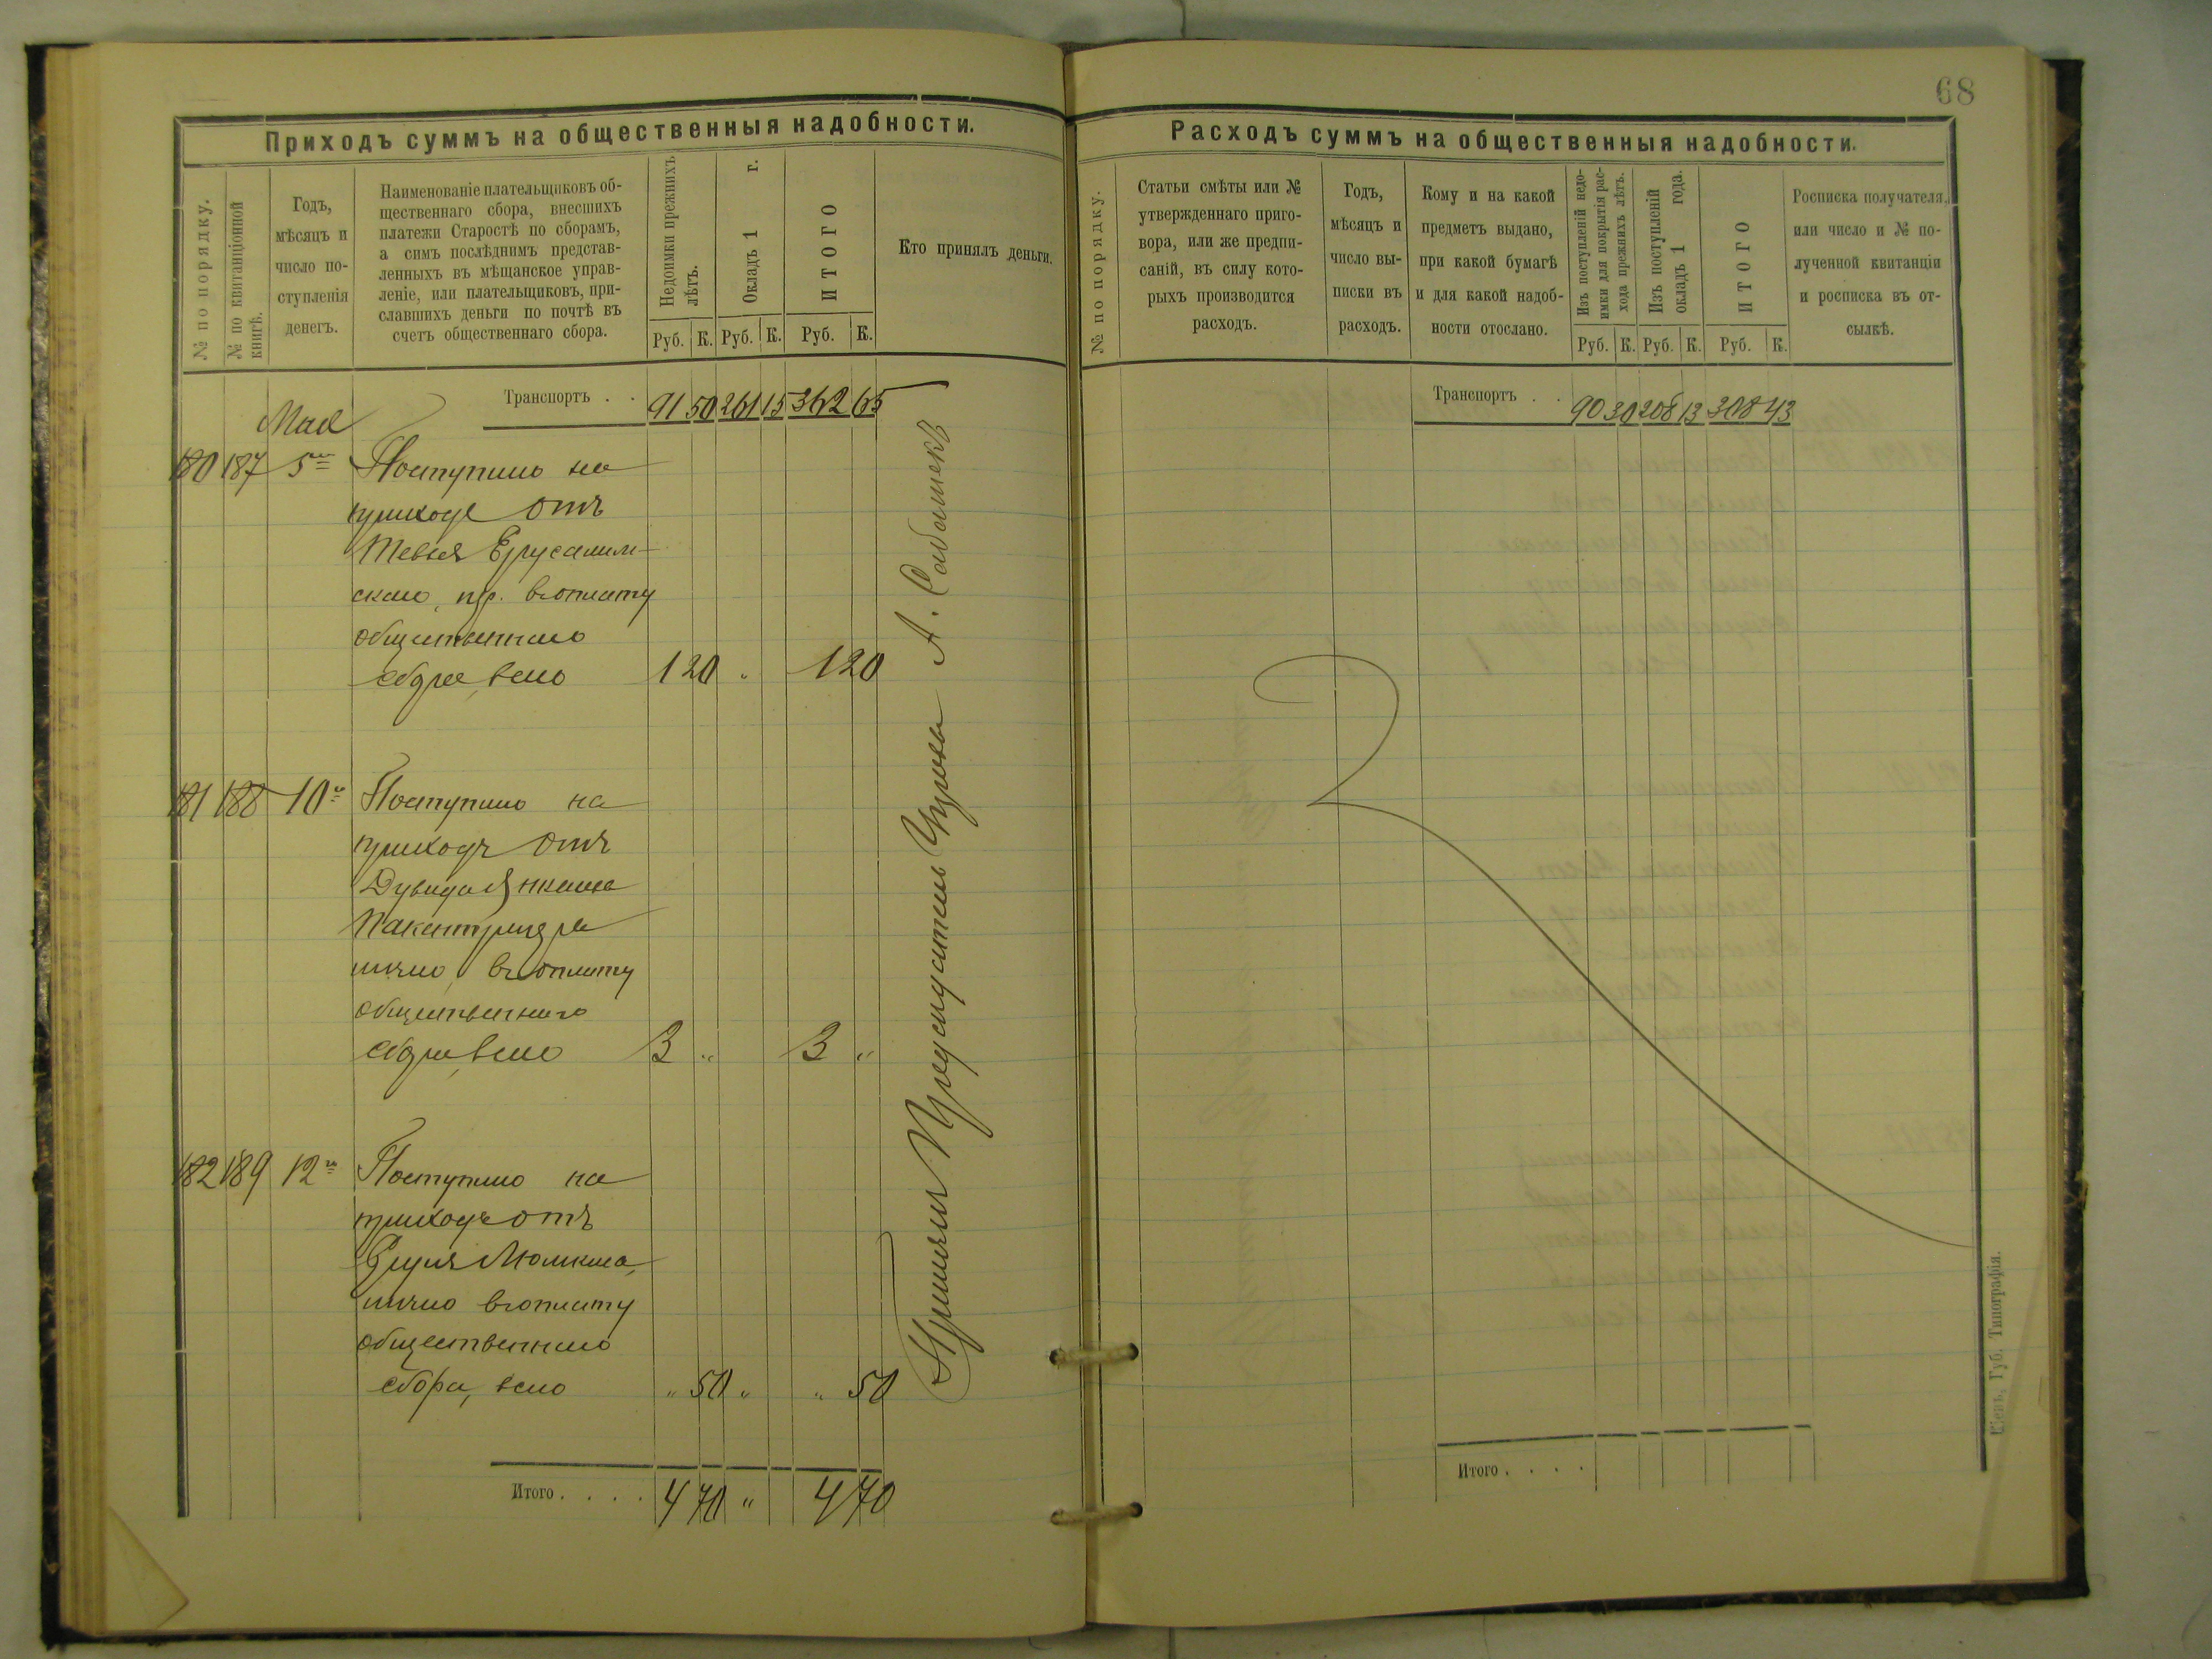 68
Приходъ суммъ на общественныя надобности.
№ по порядку.
№ по квитанціонной
книгѣ.
Годъ,
мѣсяцъ и
число по-
ступленія
денегъ.
Наименованіе плательщиковъ об-
щественнаго сбора, внесшихъ
платежи Старостѣ по сборамъ,
а симъ послѣднимъ представ-
ленныхъ въ мѣщанское управ-
леніе, или плательщиковъ, при-
славшихъ деньги по почтѣ въ
счетъ общественнаго сбора.
Недоимки прежнихъ
лѣтъ.
Окладъ 1 г.
ИТОГО
Руб. К. Руб. К. Руб. К.
Кто принялъ деньги.
Транспортъ . . 91 50 261 15 362 65
Мая
180 187 5го Поступило на
приходъ отъ
Тевья Ерусалим-
скаго, въ оплату
общественнаго
сбора, всего 1 20 " 1 20
181 188 10го Поступило на
приходъ отъ
Дувида Янкеля
лично, въ оплату
общественнаго
сбора, всего 3 " 3 "
182 189 12го Поступило на
приходъ отъ
лично въ оплату
общественнаго
сбора, всего " 50 " " 50
Итого . . . . 4 70 " 4 70
Принялъ Предсѣдатель Управы А.
Расходъ суммъ на общественныя надобности.
№ по порядку.
Статьи смѣты или №
утвержденнаго приго-
вора, или же предпи-
саній, въ силу кото-
рыхъ производится
расходъ.
Годъ,
мѣсяцъ и
число вы-
писки въ
расходъ.
Кому и на какой
предметъ выдано,
при какой бумагѣ
и для какой надоб-
ности отослано.
Изъ поступленій недо-
имки для покрытія рас-
хода прежнихъ лѣтъ.
Изъ поступленій
окладъ 1 года.
ИТОГО
Руб. К. Руб. К. Руб. К.
Росписка получателя,
или число и № по-
лученной квитанціи
и росписка въ от-
сылкѣ.
Транспортъ . . 90 30 208 13 308 43
Итого . . . .
Кіевъ, Губ. Типографія.